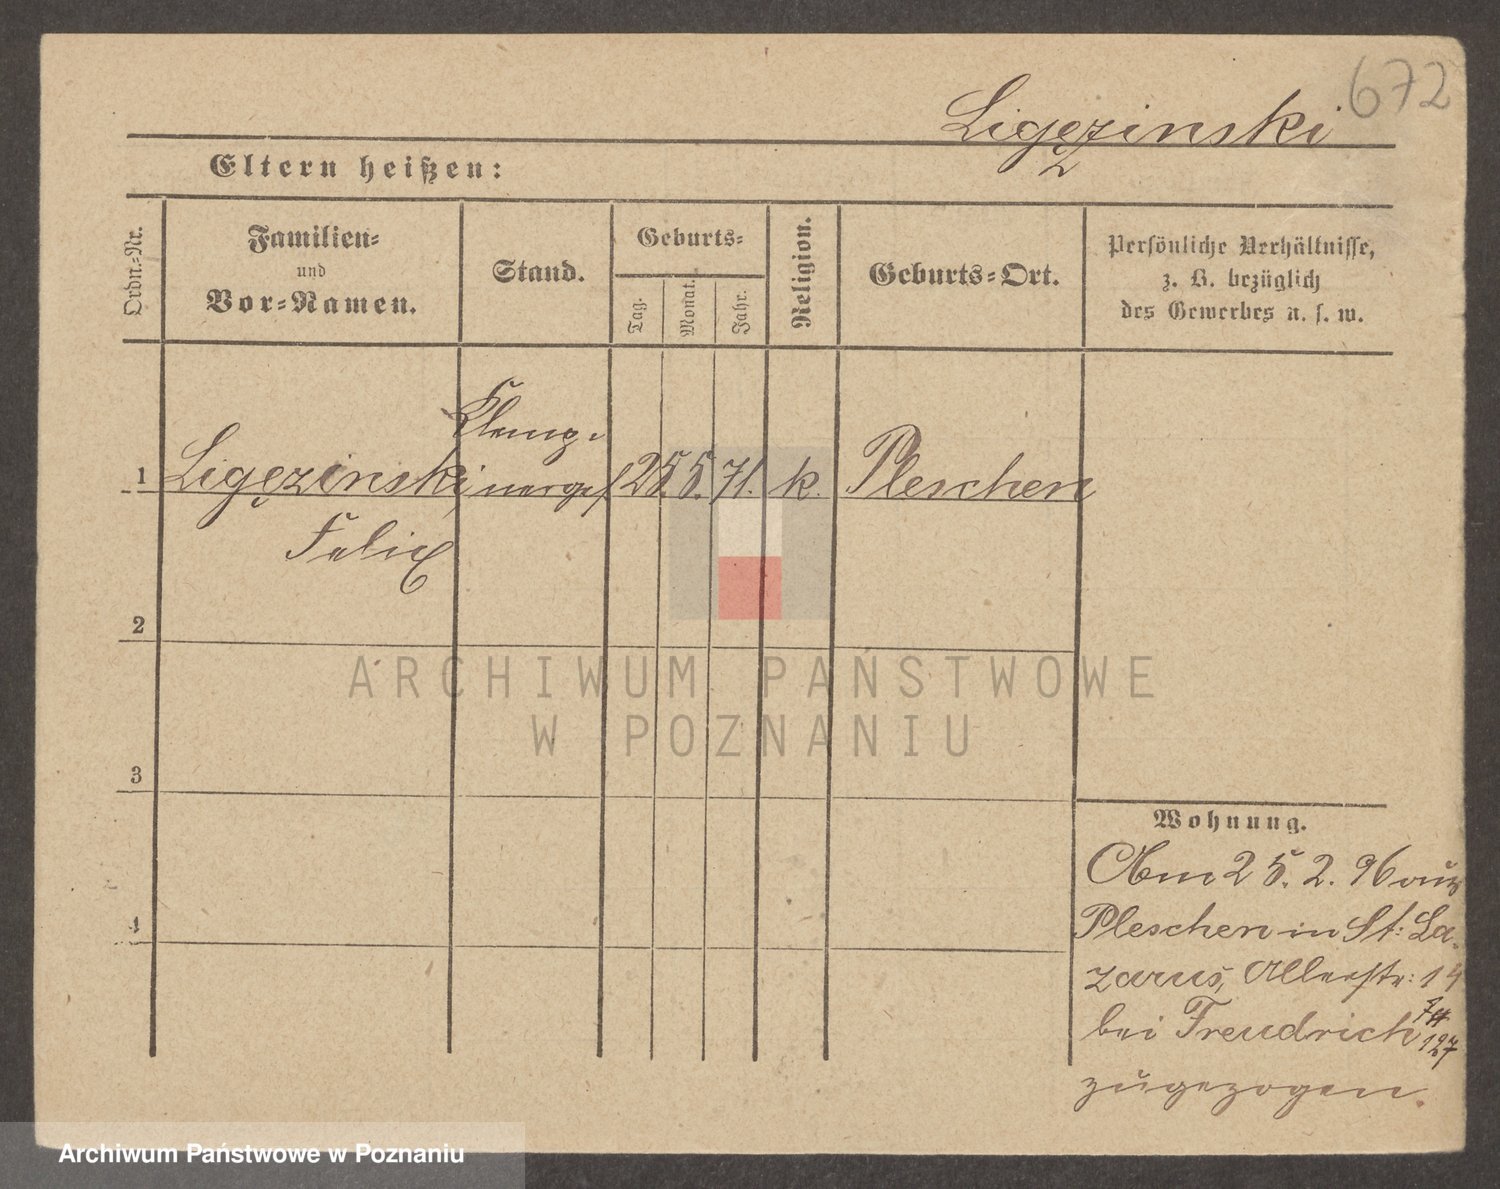 672
Ligęzinski
2
Eltern heißen:
Ordn.-Nr.
Familien-
und
Vor-Namen.
Stand.
Geburts-
Tag.
Monat.
Jahr.
Religion.
Geburts-Ort.
Persönliche Verhältnisse,
z. B. bezüglich
des Gewerbes u. s. w.
Klemp-
1 Ligęzinski, nerges. 25. 5. 71. k. Pleschen
Felix
2
3
4
Wohnung.
Am 25. 2. 96 aus
Pleschen in St. La-
zarus, Allerstr: 14
bei Freudrich
127
zugezogen.
ARCHIWUM PAŃSTWOWE
W POZNANIU
Archiwum Państwowe w Poznaniu